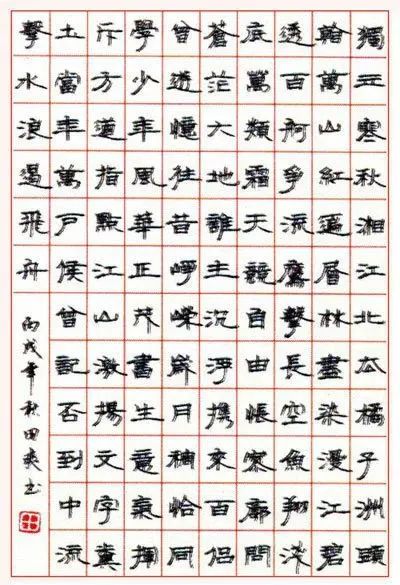 獨立寒秋湘江北去橘子洲頭
看萬山紅遍層林盡染漫江碧
透百舸爭流鷹擊長空魚翔淺
底萬類霜天競自由悵寥廓問
蒼茫大地誰主沉浮携來百侣
曾遊憶往昔崢嶸歲月稠恰同
學少年風華正茂書生意氣揮
斥方遒指點江山激揚文字糞
土當年萬戶侯曾記否到中流
擊水浪遏飛舟
丙戌年秋田書